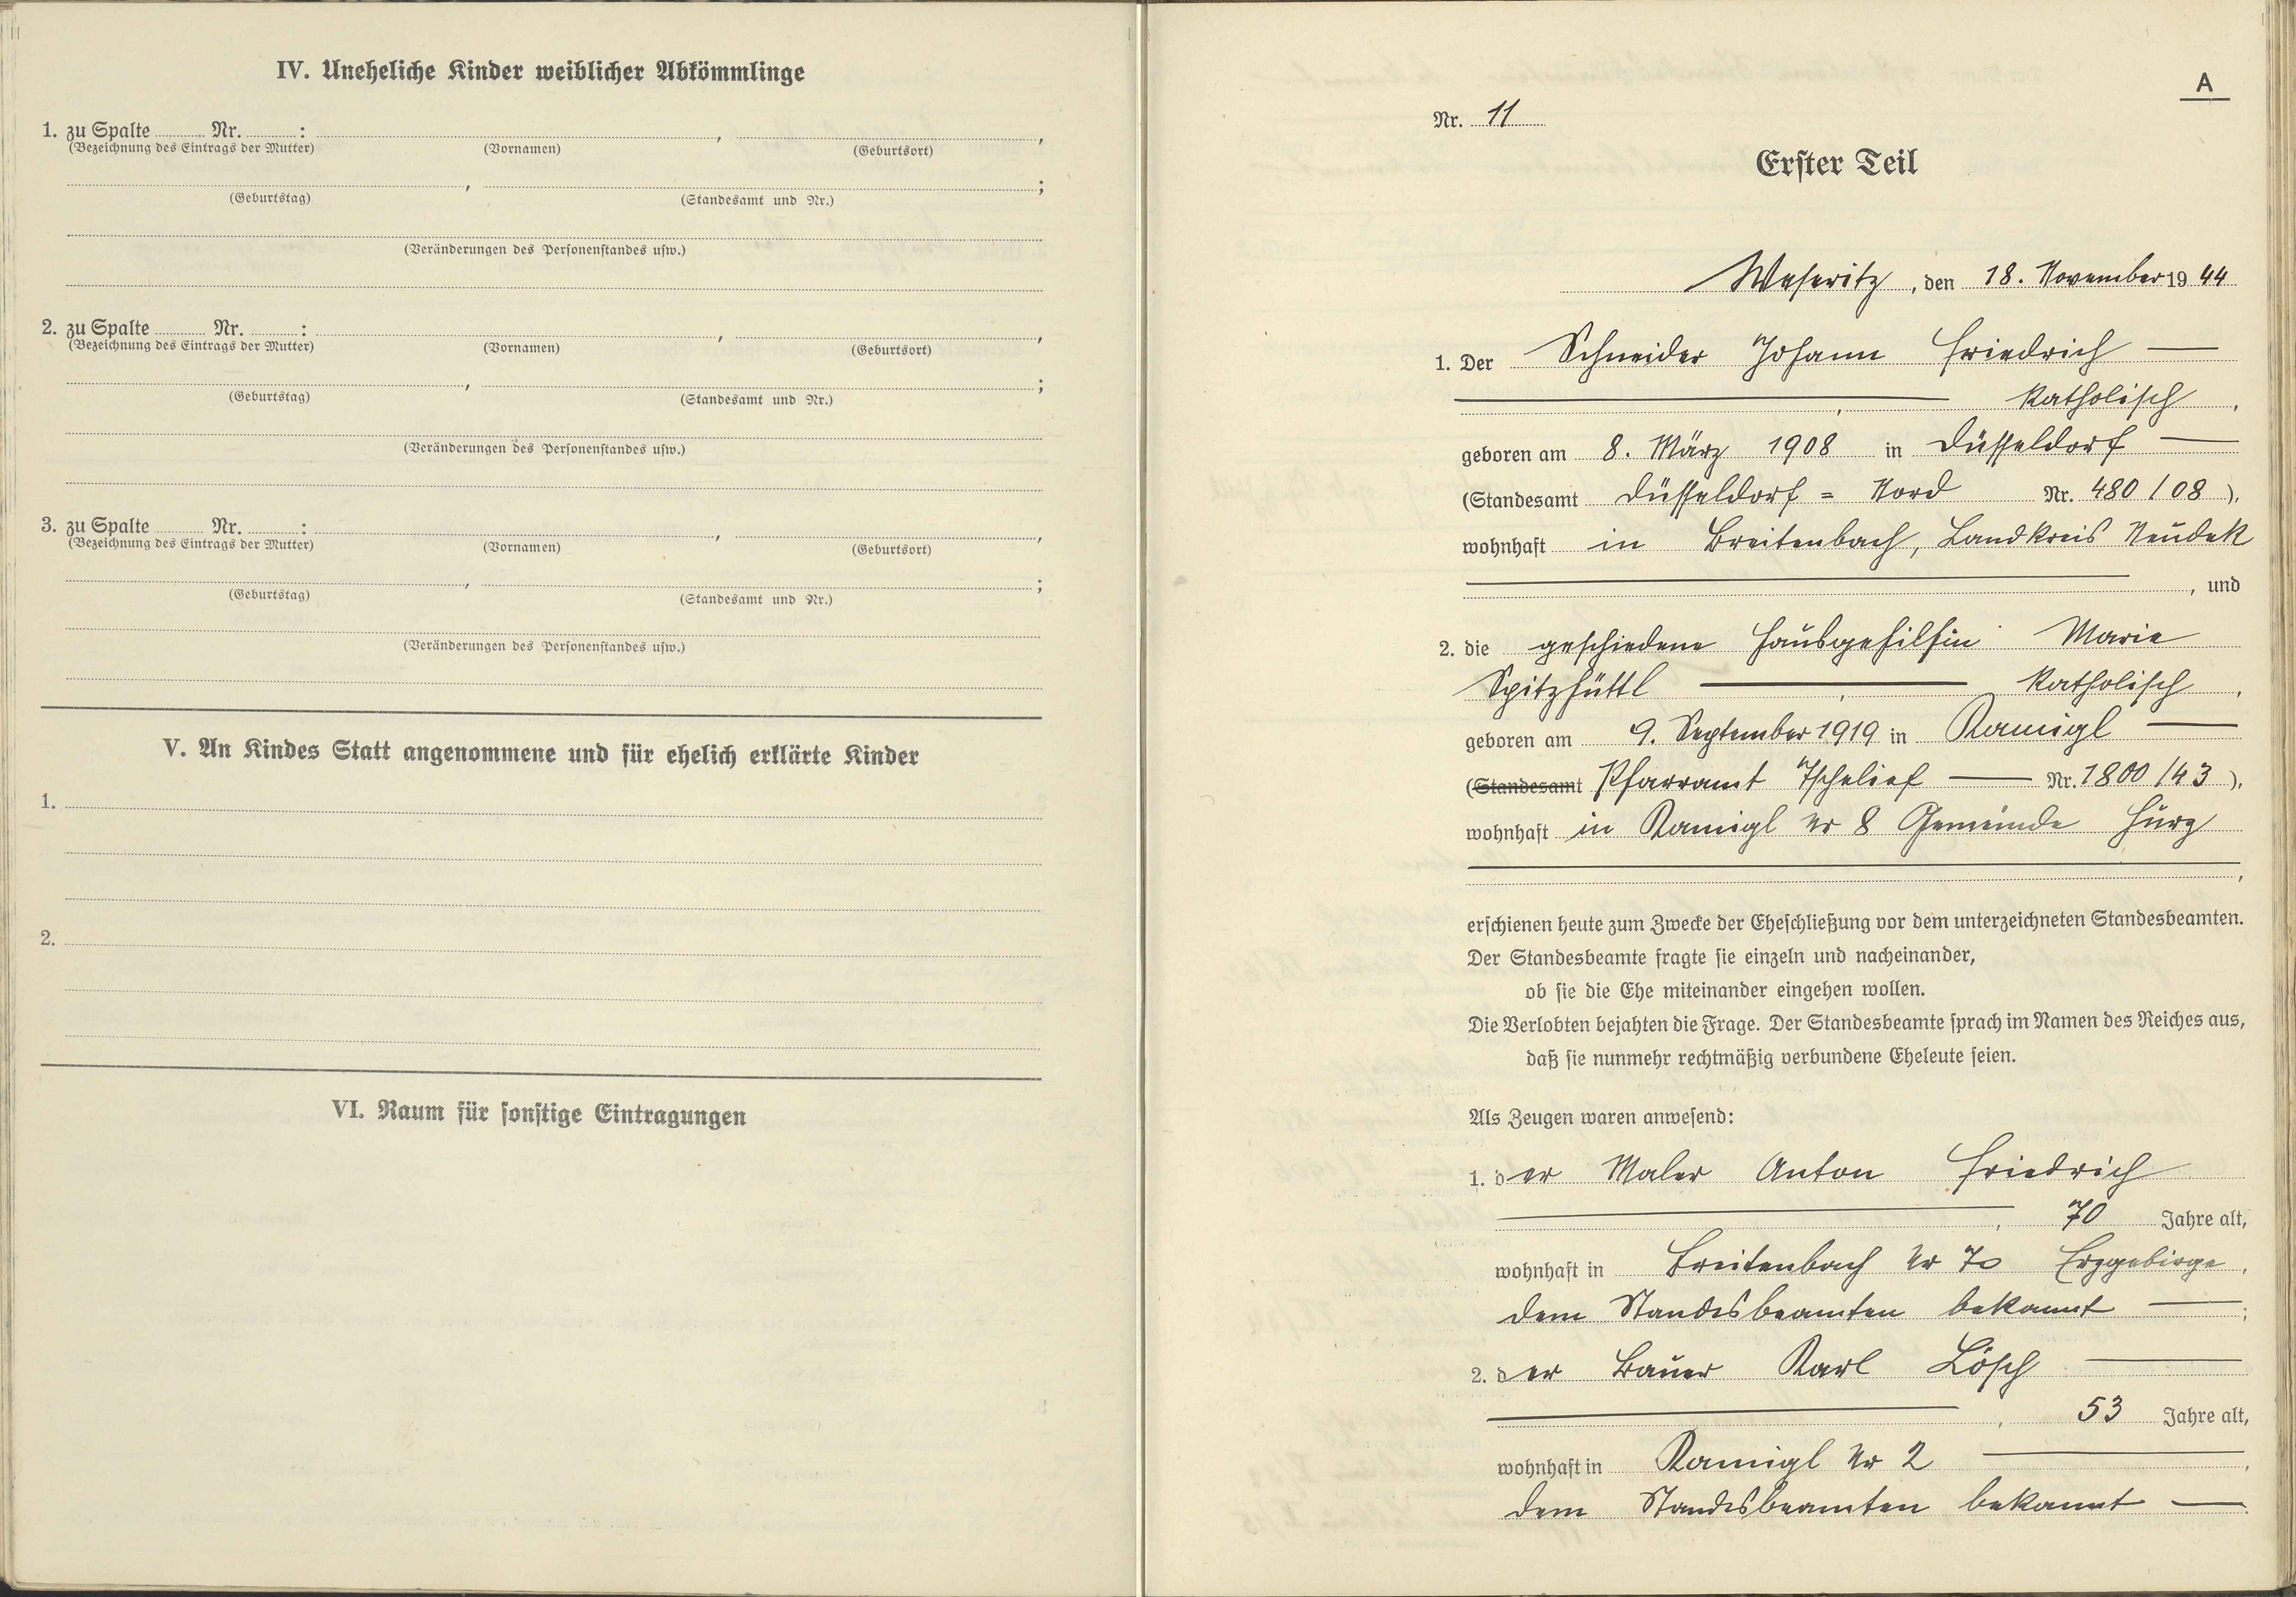 IV. Uneheliche Kinder weiblicher Abkömmlinge
1. zu Spalte ........ Nr. ........ : ........ , ........ ,
(Bezeichnung des Eintrags der Mutter) (Vornamen) (Geburtsort)
........ , ........ ;
(Geburtstag) (Standesamt und Nr.)
(Veränderungen des Personenstandes usw.)
2. zu Spalte ........ Nr. ........ : ........ , ........ ,
(Bezeichnung des Eintrags der Mutter) (Vornamen) (Geburtsort)
........ , ........ ;
(Geburtstag) (Standesamt und Nr.)
(Veränderungen des Personenstandes usw.)
3. zu Spalte ........ Nr. ........ : ........ , ........ ,
(Bezeichnung des Eintrags der Mutter) (Vornamen) (Geburtsort)
........ , ........ ;
(Geburtstag) (Standesamt und Nr.)
(Veränderungen des Personenstandes usw.)
V. An Kindes Statt angenommene und für ehelich erklärte Kinder
1.
2.
VI. Raum für sonstige Eintragungen
A
Nr. 11
Erster Teil
Weseritz, den 18. November 1944
1. Der Schneider Johann Friedrich —
— katholisch,
geboren am 8. März 1908 in Düsseldorf —
(Standesamt Düsseldorf = Nord Nr. 480/08),
wohnhaft in Breitenbach, Landkreis Neudek
—, und
2. die geschiedene Hausgehilfin Marie
Spitzhüttl — katholisch,
geboren am 9. September 1919 in Ramigl —
(Standesamt Pfarramt Tschelief — Nr. 1800/43),
wohnhaft in Ramigl Nr 8 Gemeinde Hurz
—,
erschienen heute zum Zwecke der Eheschließung vor dem unterzeichneten Standesbeamten.
Der Standesbeamte fragte sie einzeln und nacheinander,
ob sie die Ehe miteinander eingehen wollen.
Die Verlobten bejahten die Frage. Der Standesbeamte sprach im Namen des Reiches aus,
daß sie nunmehr rechtmäßig verbundene Eheleute seien.
Als Zeugen waren anwesend:
1. der Maler Anton Friedrich
—, 70 Jahre alt,
wohnhaft in Breitenbach Nr 70 Erzgebirge,
dem Standesbeamten bekannt —;
2. der Bauer Karl Lösch —
—, 53 Jahre alt,
wohnhaft in Ramigl Nr 2 —,
dem Standesbeamten bekannt —.